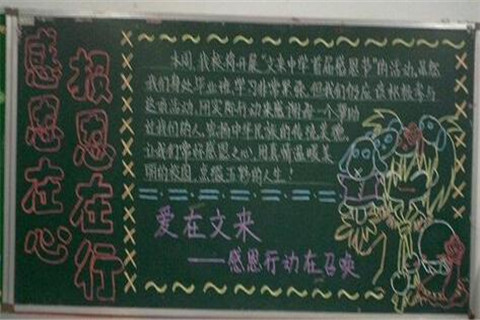 感恩在心
报恩在行
本周,我校将开展“文来中学首届感恩节”的活动,虽然
我们身处毕业班,学习非常紧张,但我们仍应该积极参与
这项活动,用实际行动来感谢每一个帮助
过我们的人,弘扬中华民族的传统美德,
让我们常怀感恩之心,用真情温暖美
丽的校园,点缀玉野的人生!
爱在文来
——感恩行动在召唤